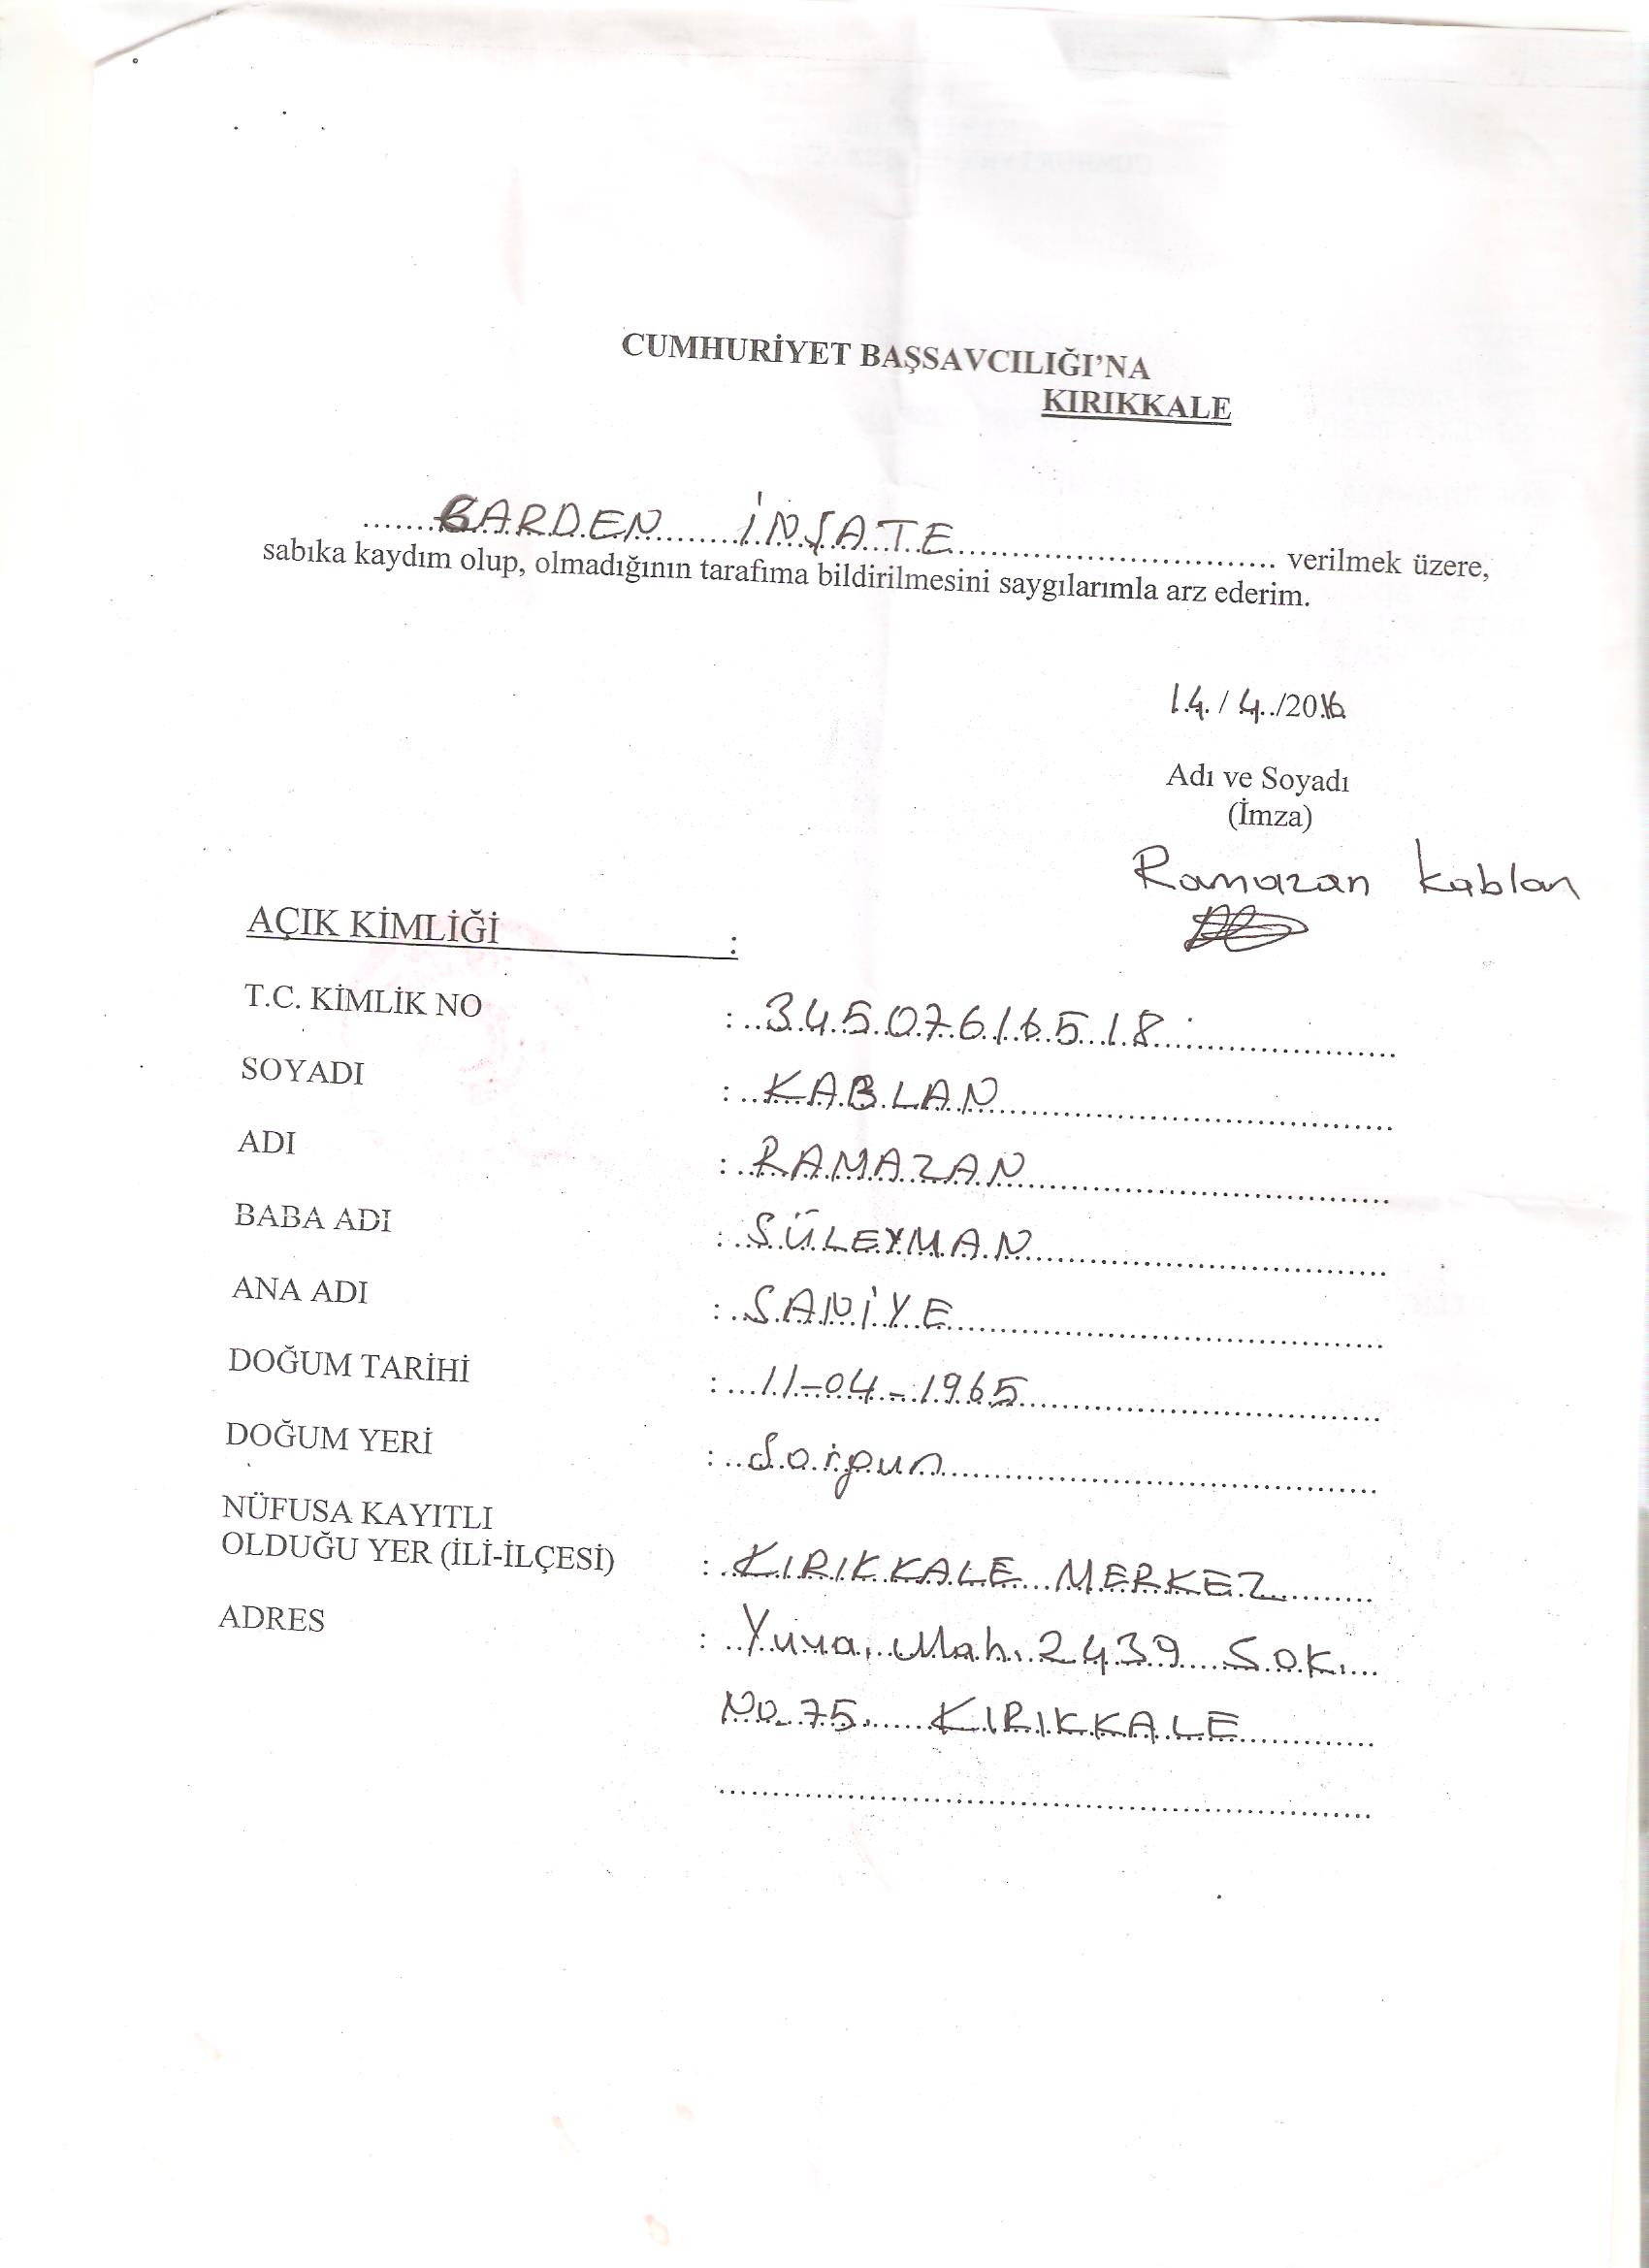 CUMHURİYET BAŞSAVCILIĞI'NA
KIRIKKALE
.......GARDEN.......İNŞATE.............................. verilmek üzere,
sabıka kaydım olup, olmadığının tarafıma bildirilmesini saygılarımla arz ederim.
14./4../2016
Adı ve Soyadı
(İmza)
Ramazan Kablan
AÇIK KİMLİĞİ :
T.C. KİMLİK NO : 34507616518
SOYADI : KABLAN
ADI : RAMAZAN
BABA ADI : SÜLEYMAN
ANA ADI : SANİYE
DOĞUM TARİHİ : 11-04-1965
DOĞUM YERİ : Sorgun
NÜFUSA KAYITLI
OLDUĞU YER (İLİ-İLÇESİ) : KIRIKKALE MERKEZ
ADRES : Yuva. Mah. 2439 SOK.
No 75. KIRIKKALE